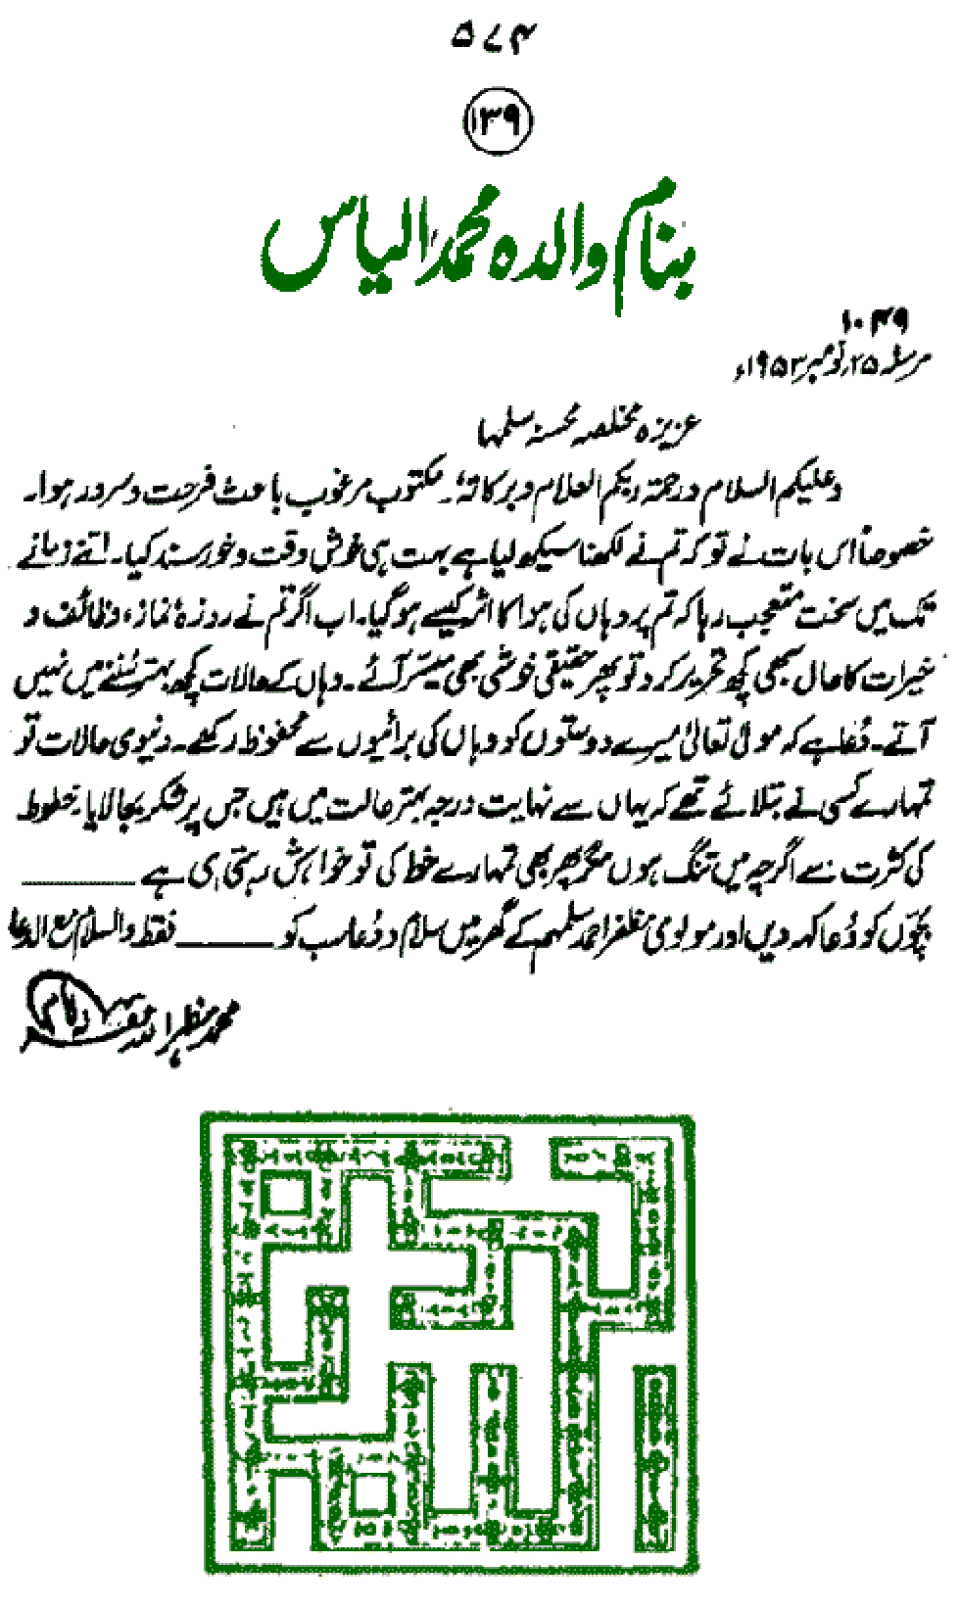 ۵۷۴
۱۳۹
بنام والدہ محمد الیاس
۱۰۴۹
مرسلہ ۲۵؍نومبر ۱۹۵۳ء
عزیزہ مخلصہ محسنہ سلمہا
وعلیکم السلام ورحمۃ ربکم العلام وبرکاتہٗ۔ مکتوب مرغوب باعث فرحت وسرور ہوا۔
خصوصاً اس بات نے تو کہ تم نے لکھنا سیکھ لیا ہے بہت ہی خوش وقت وخورسند کیا۔ اتنے زمانے
تک میں سخت متعجب رہا کہ تم پر وہاں کی ہوا کا اثر کیسے ہوگیا۔ اب اگر تم نے روزہ نماز، وظائف و
خیرات کا حال بھی کچھ تحریر کردو تو پھر حقیقی خوشی بھی میسر آئے۔ وہاں کے حالات کچھ بہتر سُننے میں نہیں
آتے۔ دُعا ہے کہ مولیٰ تعالیٰ میرے دوستوں کو وہاں کی برائیوں سے محفوظ رکھے۔ دنیوی حالات تو
تمہارے کسی نے بتلائے تھے کہ یہاں سے نہایت درجہ بہتر حالت میں ہیں جس پر شکر بجا لایا۔ خطوط
کی کثرت سے اگرچہ میں تنگ ہوں مگر پھر بھی تمہارے خط کی تو خواہش رہتی ہی ہے ــــــــــــ
بچوّں کو دُعا کہہ دیں اور مولوی مظفر احمد سلمہم کے گھر میں سلام و دُعا سب کو ــــــــــــ فقط والسلام مع الدعا
محمد مظہر اللہ